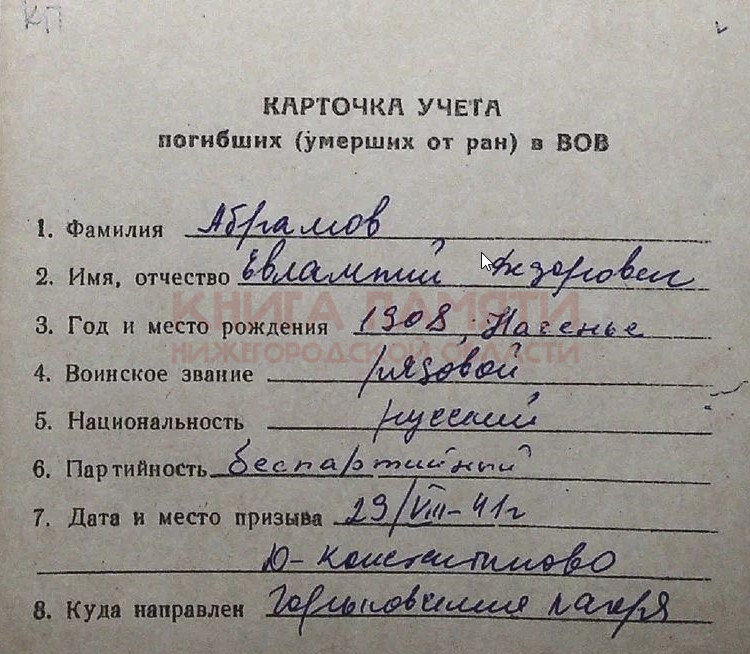 КП
КАРТОЧКА УЧЕТА
погибших (умерших от ран) в ВОВ
1. Фамилия Абрамов
2. Имя, отчество Евлампий Федорович
КНИГА ПАМЯТИ
3. Год и место рождения 1908, Насенье
НИЖЕГОРОДСКОЙ ОБЛАСТИ
4. Воинское звание рядовой
5. Национальность русский
6. Партийность беспартийный
7. Дата и место призыва 29/VIII-41г
Д-Константиново
8. Куда направлен Горьковские лагеря